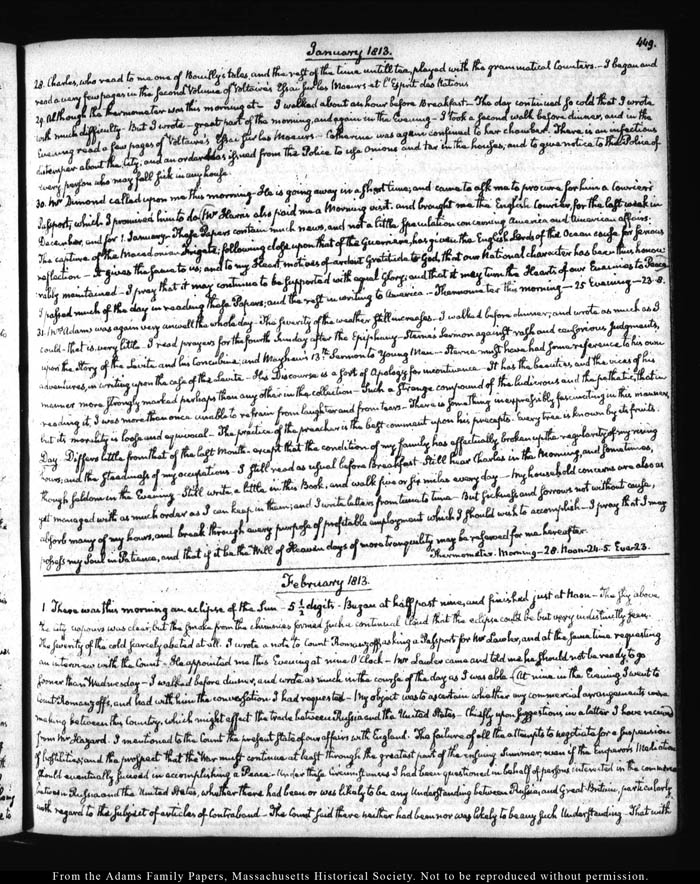 January 1813.
449.
28. Charles, who read to me one of Bouilly's tales, and the rest of the time untill tea, played with the grammatical Counters. - I began and
read a very few pages in the second Volume of Voltaire's Essai sur les Moeurs et l'Esprit des Nations
29. Although the thermometer was this morning at - I walked about an hour before Breakfast - The day continued so cold that I wrote
with much difficulty. But I wrote great part of the morning, and again in the Evening - I took a second walk before dinner, and in the
Evening read a few pages of Voltaire's Essai sur les Moeurs - Catherine was again confined to her chamber. There is an infectious
distemper about the city, and an order has issued from the Police to use Onions and tar in the houses, and to give notice to the Police of
every person who may fall sick in any house.
30. Mr Dimond called upon me this morning - He is going away in a short time; and came to ask me to procure for him a Courier's
Passport, which I promised him to do. Mr Harris also paid me a Morning visit: and brought me the English Courier, for the last week in
December, and for 1. January. These Papers contain much news, and not a little Speculation concerning America and American affairs.
The capture of the Macedonian Frigate, following close upon that of the Guerriere, has given the English Lords of the Ocean cause for serious
reflection - It gives the same to us; and to my Heart motives of ardent Gratitude to God, that our National character has been thus honou-
rably maintained - I pray that it may continue to be supported with equal Glory; and that it may turn the Hearts of our Enemies to Peace
I passed much of the day in reading these Papers; and the rest in writing to America - Thermometer this morning - 25 Evening - 23.8.
31. Mrs Adams was again very unwell the whole day. The severity of the weather still increases. I walked before dinner; and wrote as much as I
could - that is, very little. I read prayers for the fourth Sunday after the Epiphany - Sterne's Sermon against rash and censorious Judgments,
upon the Story of the Levite and his Concubine; and Mayhew's 13th. Sermon to Young Men - Sterne must have had some reference to his own
adventures, in writing upon the case of the Levite - His Discourse is a sort of Apology for incontinence - It has the beauties, and the vices of his
manner more strongly marked perhaps than any other in the collection - Such a strange compound of the ludicrous and the pathetic, that in
reading it, I was more than once unable to refrain from laughter and from tears - There is something inexpressibly fascinating in this manner,
but its morality is loose and equivocal - The practice of the preacher is the best comment upon his precepts. Every tree is known by its fruits.
Day. Differs little from that of the last Month, except that the condition of my family has effectually broken up the regularity of my rising
hours, and the steadiness of my occupations. I still read as usual before Breakfast. Still hear Charles in the Morning, and sometimes,
though seldom in the Evening. Still write a little in this Book, and walk five or six miles every day - My household concerns are also as
yet managed with as much order as I can keep in them; and I write letters from time to time - But sickness and sorrows not without cause,
absorb many of my hours, and break through every purpose of profitable employment which I should wish to accomplish - I pray that I may
possess my Soul in Patience, and that if it be the Will of Heaven days of more tranquility may be reserved for me hereafter.
Thermometer. Morning - 28. Noon - 24.5. Eve - 23.
February 1813.
1. There was this morning an eclipse of the Sun - 5 1/2 digits - Began at half past nine, and finished just at Noon - The sky above
the city vapours was clear, but the smoke from the chimnies formed such a continual cloud that the eclipse could be but very indistinctly seen.
The severity of the cold scarcely abated at all. I wrote a note to Count Romanzoff, asking a Passport for Mr Lauder, and at the same time requesting
an interview with the Count - He appointed me this Evening at nine O'Clock - Mr Lauder came and told me he should not be ready to go
sooner than Wednesday - I walked before dinner, and wrote as much in the course of the day as I was able - (At nine in the Evening I went to
Count Romanzoff's, and had with him the conversation I had requested - My object was to ascertain whether any commercial arrangements were
making between this Country, which might affect the trade between Russia and the United States - Chiefly upon suggestions in a letter I have received
from Mr Hazard. I mentioned to the Count the present state of our affairs with England. The failure of all the attempts to negotiate for a suspension
of hostilities; and the prospect that the War must continue at least through the greatest part of the ensuing Summer, even if the Emperor's Mediation
should eventually succeed in accomplishing a Peace - Under these circumstances I had been questioned in behalf of persons interested in the commerce
between Russia and the United States, whether there had been or was likely to be any Understanding between Russia, and Great Britain, particularly
with regard to the subject of articles of Contraband - The Count said there neither had been nor was likely to be any such Understanding - That with
From the Adams Family Papers, Massachusetts Historical Society. Not to be reproduced without permission.